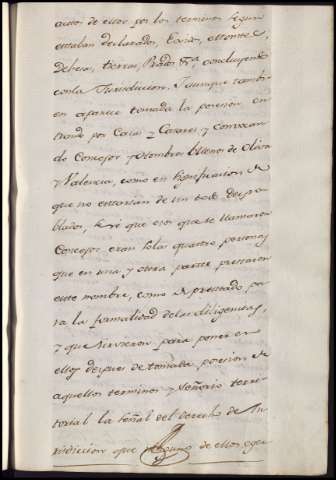 autos de estar por los terminos segun
estaban declarados, Casas, el monte,
deberas, tierras, Prados &ca, concluyendo
con la Jurisdiccion. Y aunque tambien
en aparece tomada la posesion en
trando por Casas y Casares, y convocan
do Concejos y Hombres buenos de Oliva
y Valencia, como en significacion de
que no estarian de un todo despo
blados, se vé que esos que se llamaron
Concejos eran solas quatro personas
que en una y otra parte prestaron
este nombre, como de prestado pa
ra la formalidad de las diligencias,
y que sirvieron para poner en
ellos despues de tomada posesion de
aquellos terminos y señorio terri
torial la señal del derecho de Ju
risdiccion que alguno de ellos ege